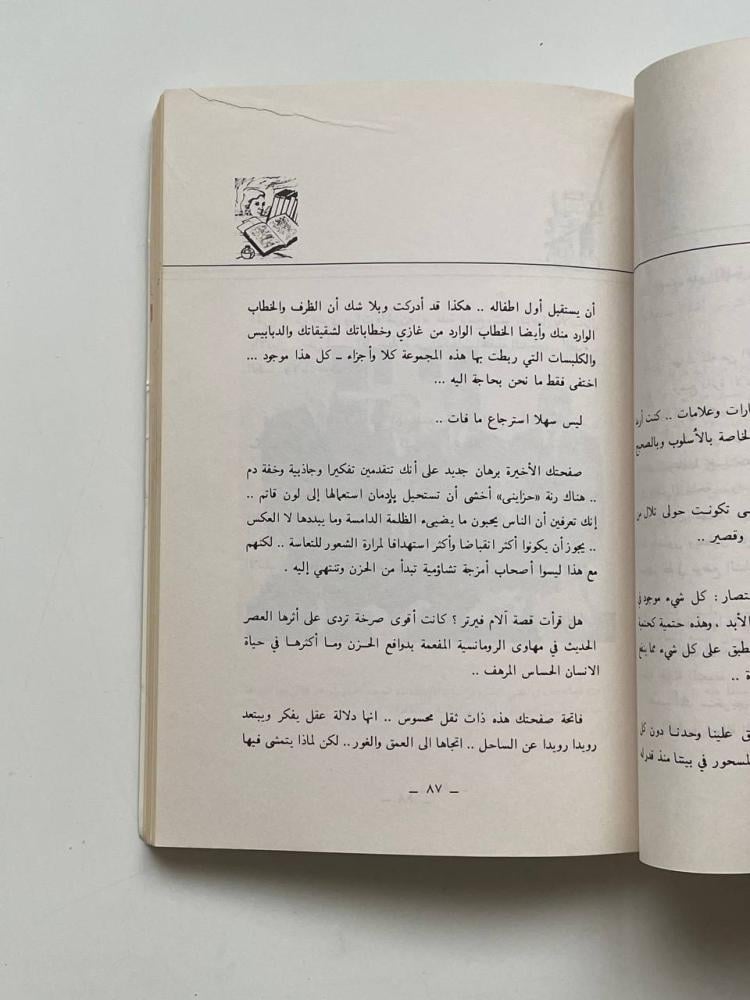 أن يستقبل أول اطفاله .. هكذا قد أدركت وبلا شك أن الظرف والخطاب
الوارد منك وأيضا الخطاب الوارد من غازي وخطاباتك لشقيقاتك والدبابيس
والكلبسات التي ربطت بها هذه المجموعة كلا وأجزاء ــ كل هذا موجود ...
اختفى فقط ما نحن بحاجة اليه ...
ليس سهلا استرجاع ما فات ..
صفحتك الأخيرة برهان جديد على أنك تتقدمين تفكيرا وجاذبية وخفة دم
.. هناك رنة «حزاينى» أخشى أن تستحيل بإدمان استعمالها إلى لون قاتم ..
إنك تعرفين أن الناس يحبون ما يضيىء الظلمة الدامسة وما يبددها لا العكس
.. يجوز أن يكونوا أكثر انقباضا وأكثر استهدافا لمرارة الشعور للتعاسة .. لكنهم
مع هذا ليسوا أصحاب أمزجة تشاؤمية تبدأ من الحزن وتنتهي إليه .
هل قرأت قصة آلام فيرتر ؟ كانت أقوى صرخة تردى على أثرها العصر
الحديث في مهاوى الرومانسية المفعمة بدوافع الحزن وما أكثرها في حياة
الانسان الحساس المرهف ..
فاتحة صفحتك هذه ذات ثقل محسوس .. انها دلالة عقل يفكر ويبتعد
رويدا رويدا عن الساحل .. اتجاها الى العمق والغور .. لكن لماذا يتمشى فيها
ــ ٨٧ ــ
وعلامات .. كنت
الخاصة بالأسلوب
تكونت حولى تلال
وقصير ..
: كل شيء موجود
الأبد ، وهذه حتمية
على كل شيء مما
علينا وحدنا دون كل
في بيتنا منذ